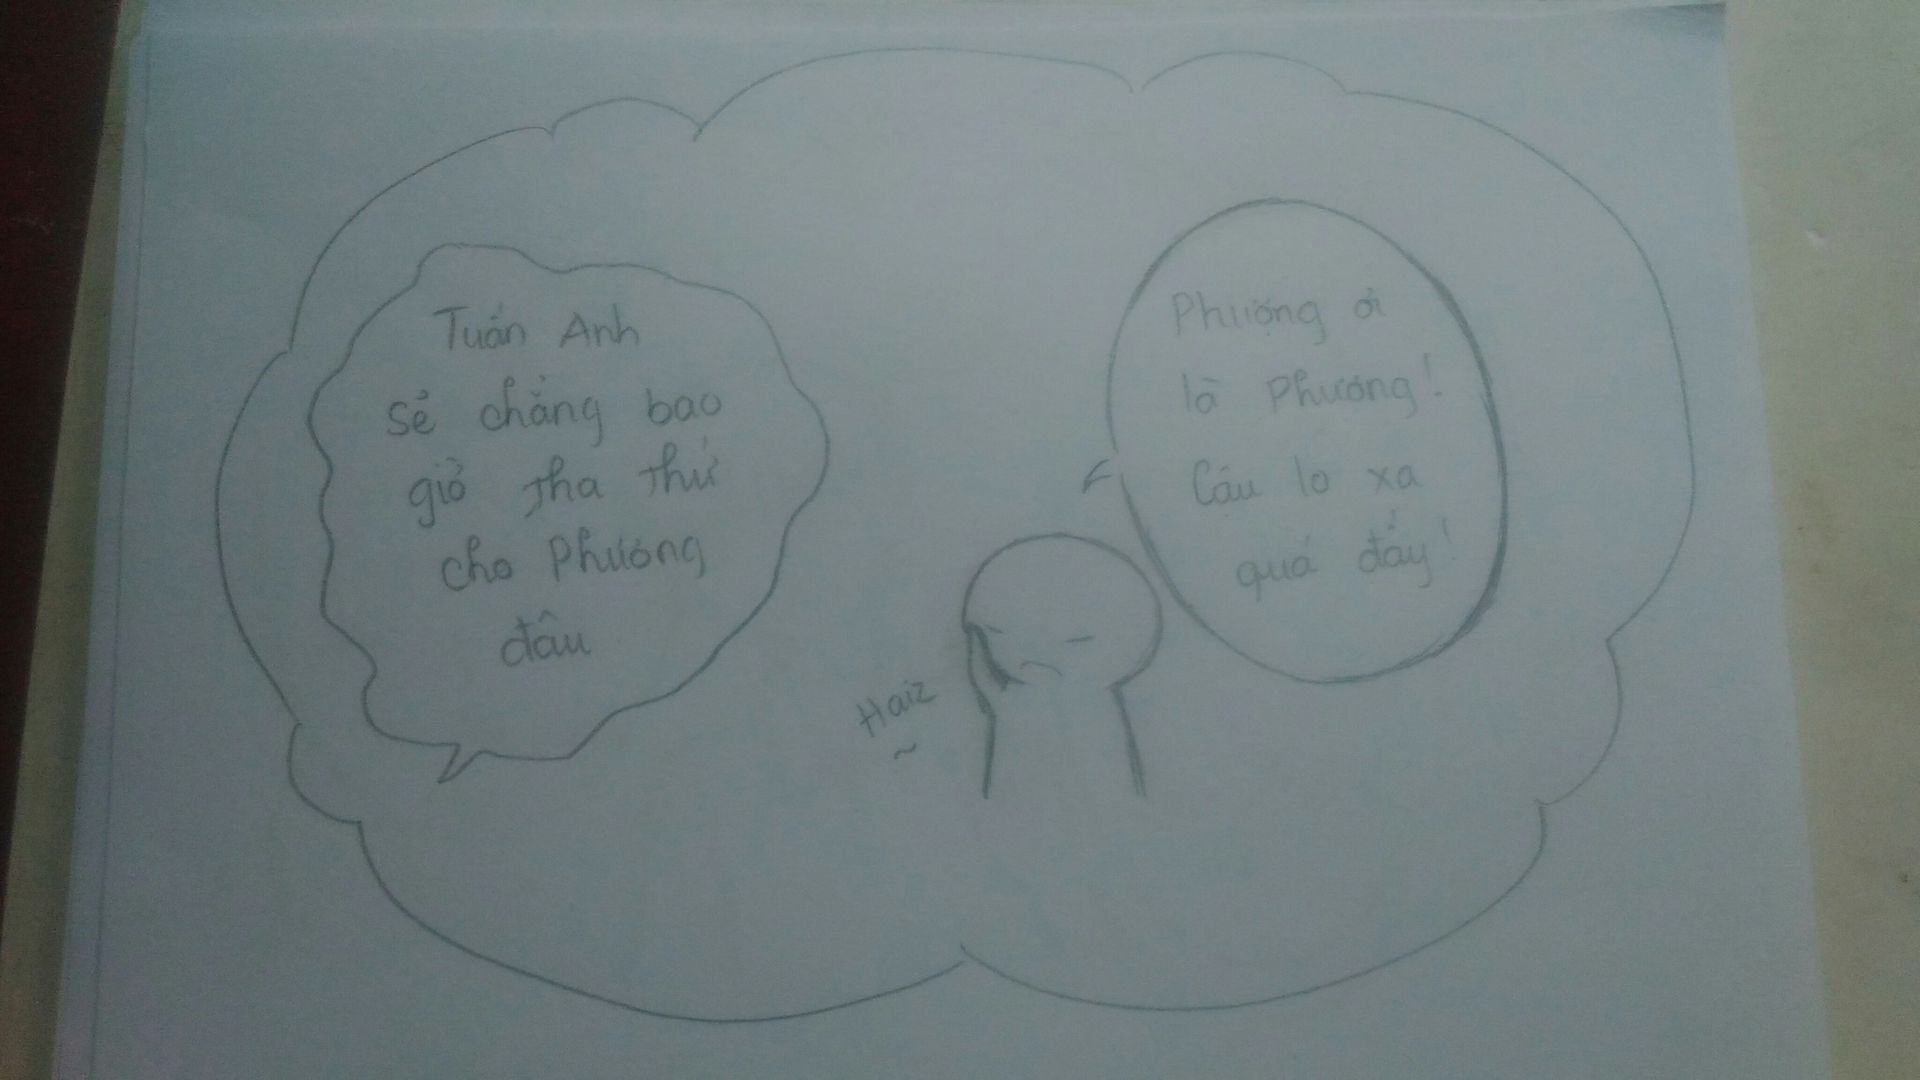 Tuấn Anh
sẽ chẳng bao
giờ tha thứ
cho Phượng
đâu
Phượng ơi
là Phượng!
Cậu lo xa
quá đấy!
Haiz
~